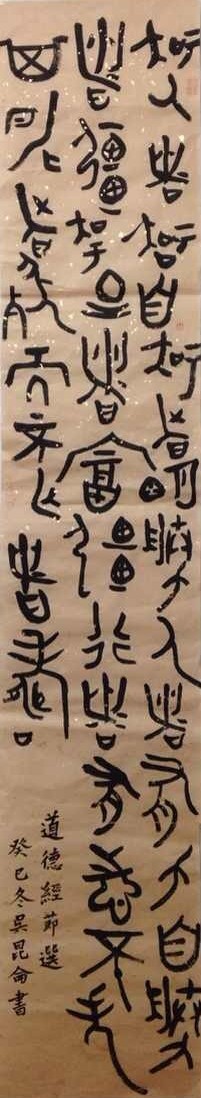 知人者智自知者明勝人者有力自勝
者彊知足者富彊行者有志不失
其所者久死而不亡者壽
道德經節選
癸巳冬吳昆侖書